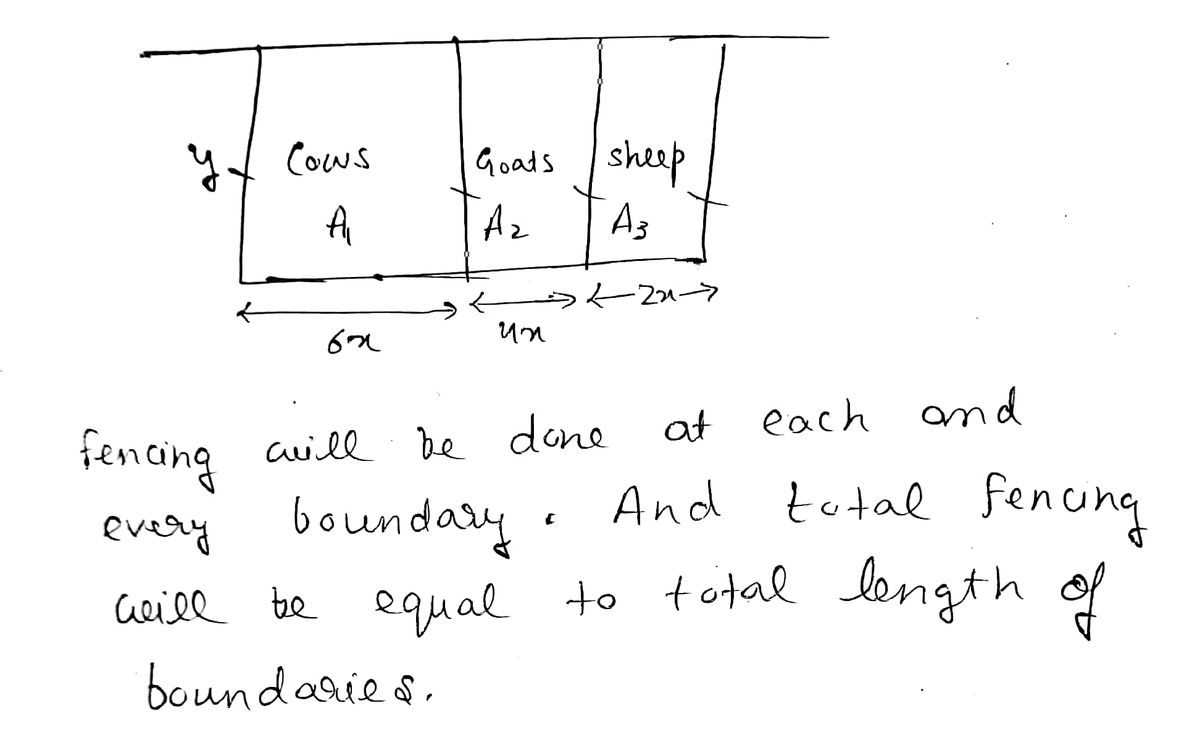 y Cows Goats sheep
A1 A2 A3
6x 4x 2x
fencing will be done at each and
every boundary. And total fencing
will be equal to total length of
boundaries.